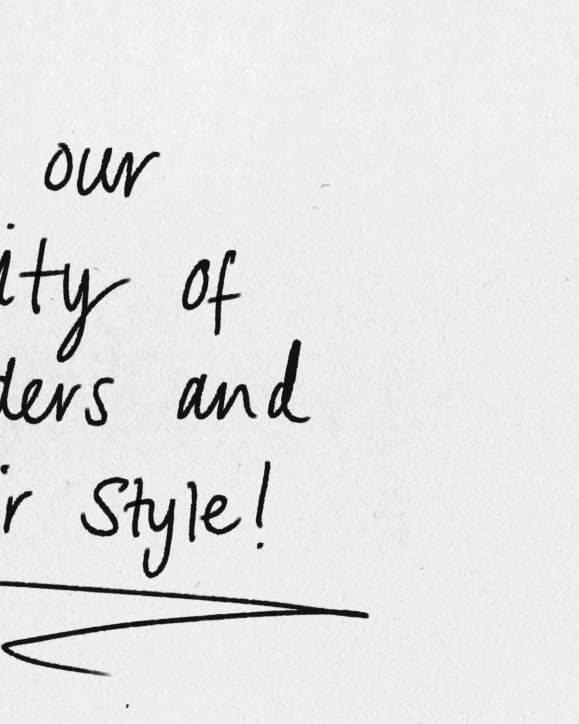 our
ity of
ders and
r Style!